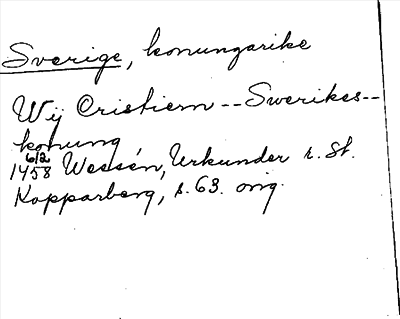 Sverige, konungarike
Wij Cristiern -- Swerikes --
konung
6/2
1458 Wessén, Urkunder r. St.
Kopparberg, s. 63. orig.